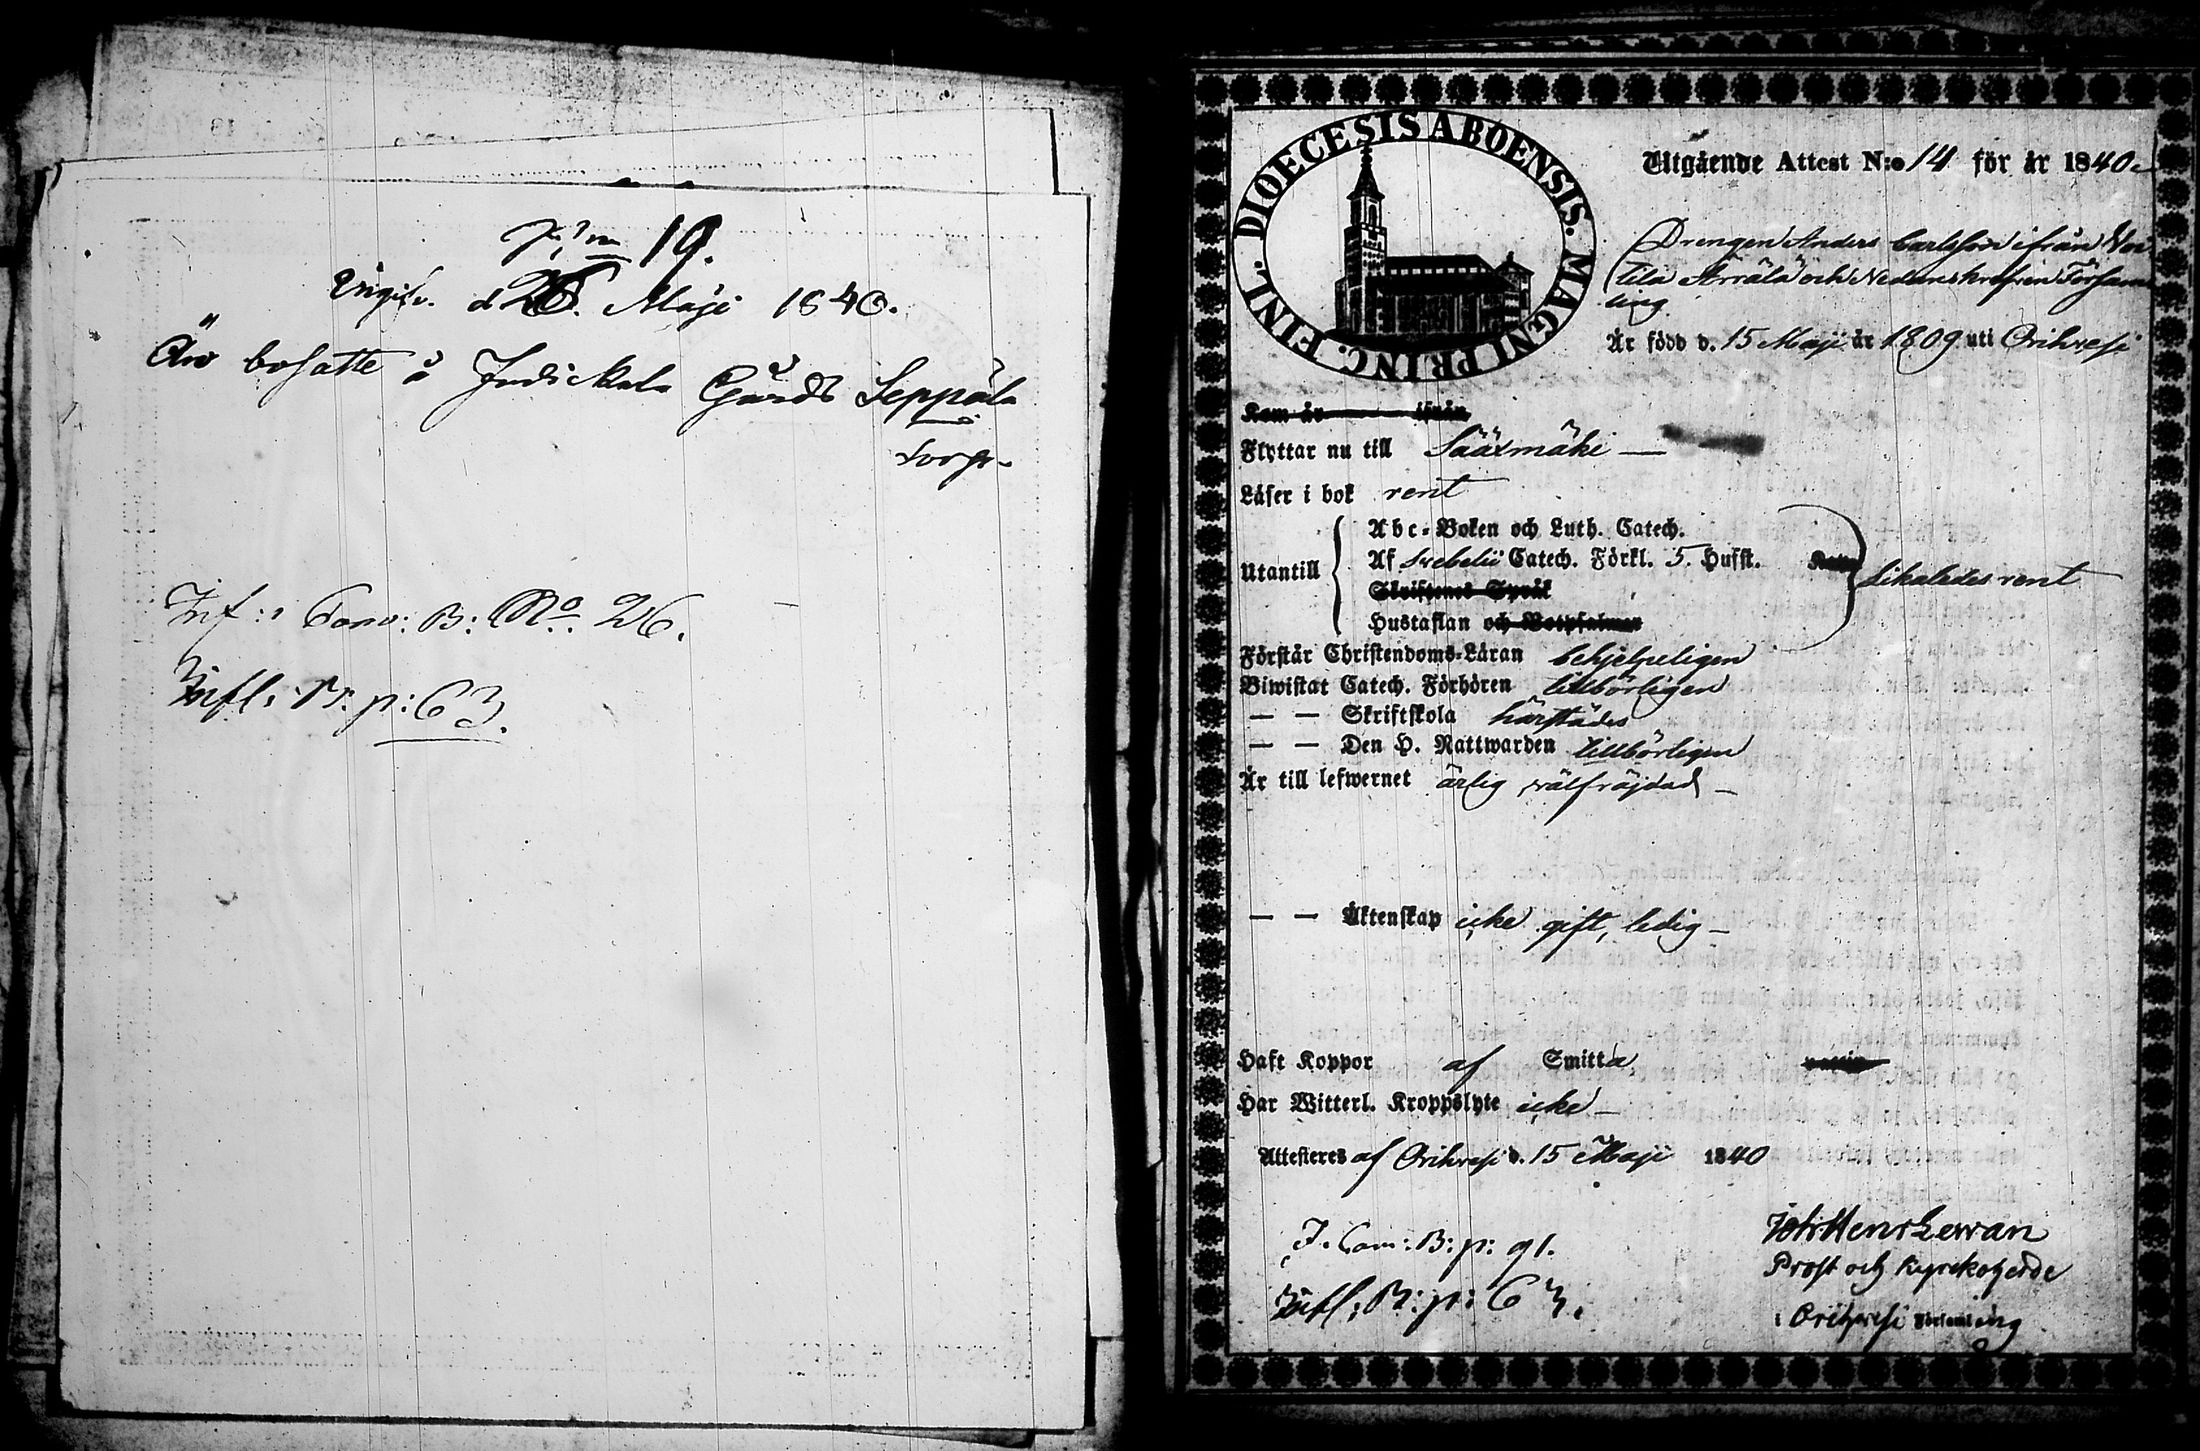 19.
d 26. Maji 1840.
Äro bosatte å Judickala Gårds Seppälä
torp.
Inf: i Comv: B: No. 26.
Infl: B: p: 63.
DIOECESIS ABOENSIS. MAGNI PRINC. FINL.
Utgående Attest N:o 14 för år 1840
Drengen Anders Carlsson ifrån
och Nedanskrefven Församling
Är född d. 15 Maji år 1809 uti Orihvesi
Kom år ifrån
Flyttar nu till Sääxmäki —
Läser i bok rent
Utantill
Abc-Boken och Luth. Catech.
Af Svebelii Catech. Förkl. 5. Hufst.
Skriftenes Språk
Hustaflan och Botpsalmer
likaledes rent
Förstår Christendoms-Läran behjelpeligen
Biwistat Catech. Förhören tillbörligen
— — Skriftskola härstädes
— — Den H. Nattwarden tillbörligen
Är till lefwernet ärlig välfräjdad —
— — Äktenskap icke gift, ledig —
Haft Koppor af Smitta
Har Witterl. Kroppslyte icke —
Attesteres af Orihvesi d. 15 Maji 1840
I. Com: B: p: 91.
Infl: B: p: 63.
Joh Henr Levvan
Prost och Kyrckoherde
i Orihvesi Församling